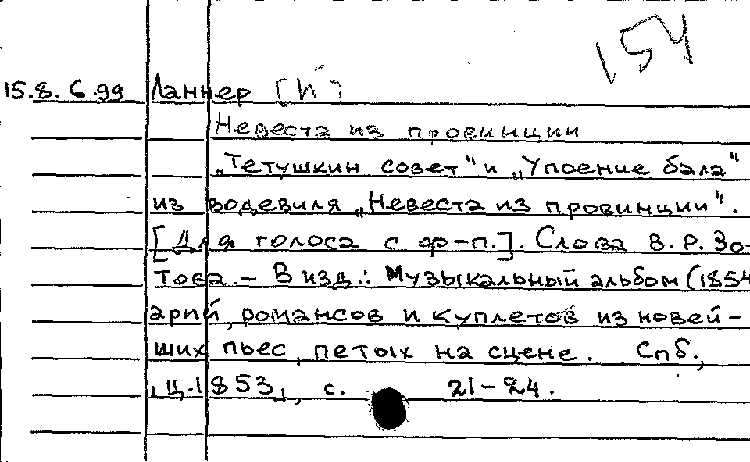 154
15.8.6.99 Ланнер [И]
Невеста из провинции
„Тетушкин совет" и „Упоение бала"
из водевиля „Невеста из провинции".
[Для голоса с ф-п.]. Слова В. Р. Зо-
това. – В изд.: Музыкальный альбом (1854
арий, романсов и куплетов из новей-
ших пьес, петых на сцене. Спб.,
ц. 1853, с. 21–24.